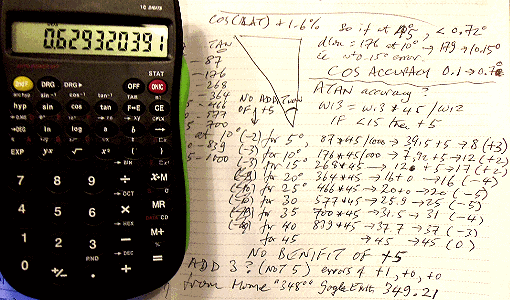 0.629320391
STAT
2ndF DRG DRG▸ OFF ON/C
sin⁻¹ cos⁻¹ tan⁻¹ TAB
hyp sin cos tan F↔E CE
→DEG ln log a b →
EXP yˣ √ x² ( )
7 8 9 ÷ X→M
4 5 6 × MR
1 2 3 − M+
RND
0 +/− . + =
COS(LAT) +1.6%
So if at 45, < 0.72°
dlon = 176 at 10° → 179 → 10.15°
ie 0.15° error.
COS ACCURACY 0.1→0.7°
ATAN accuracy?
W13 = W13 * 45 / W12
IF < 15 then +5
TAN
- 87
- 176
- 268
- 364
- 5 - 466
- 577
- 5 700
- 839
- 5 - 1000
NO ADD THAN
OF +5
at 10° (-2) for 5° 87*45/1000 → 3.9+5 → 8 (+3)
(-3) for 10° 176*45/1000 → 7.92+5 → 12 (+2)
(-3) for 15° 268*45 → 12+5 → 17 (+2)
for 20° 364*45 → 16+0 → 16 (-4)
for 25° 466*45 → 20+0 → 20 (-5)
for 30 577*45 → 25.9 → 25 (-5)
for 35 700*45 → 31.5 → 31 (-4)
for 40 839*45 → 37.7 → 37 (-3)
for 45 → 45 → 45 (0)
NO BENIFIT OF +5
ADD 3? (NOT 5) errors of +1, +0, +0
From Home "348°" Google Earth 349.21